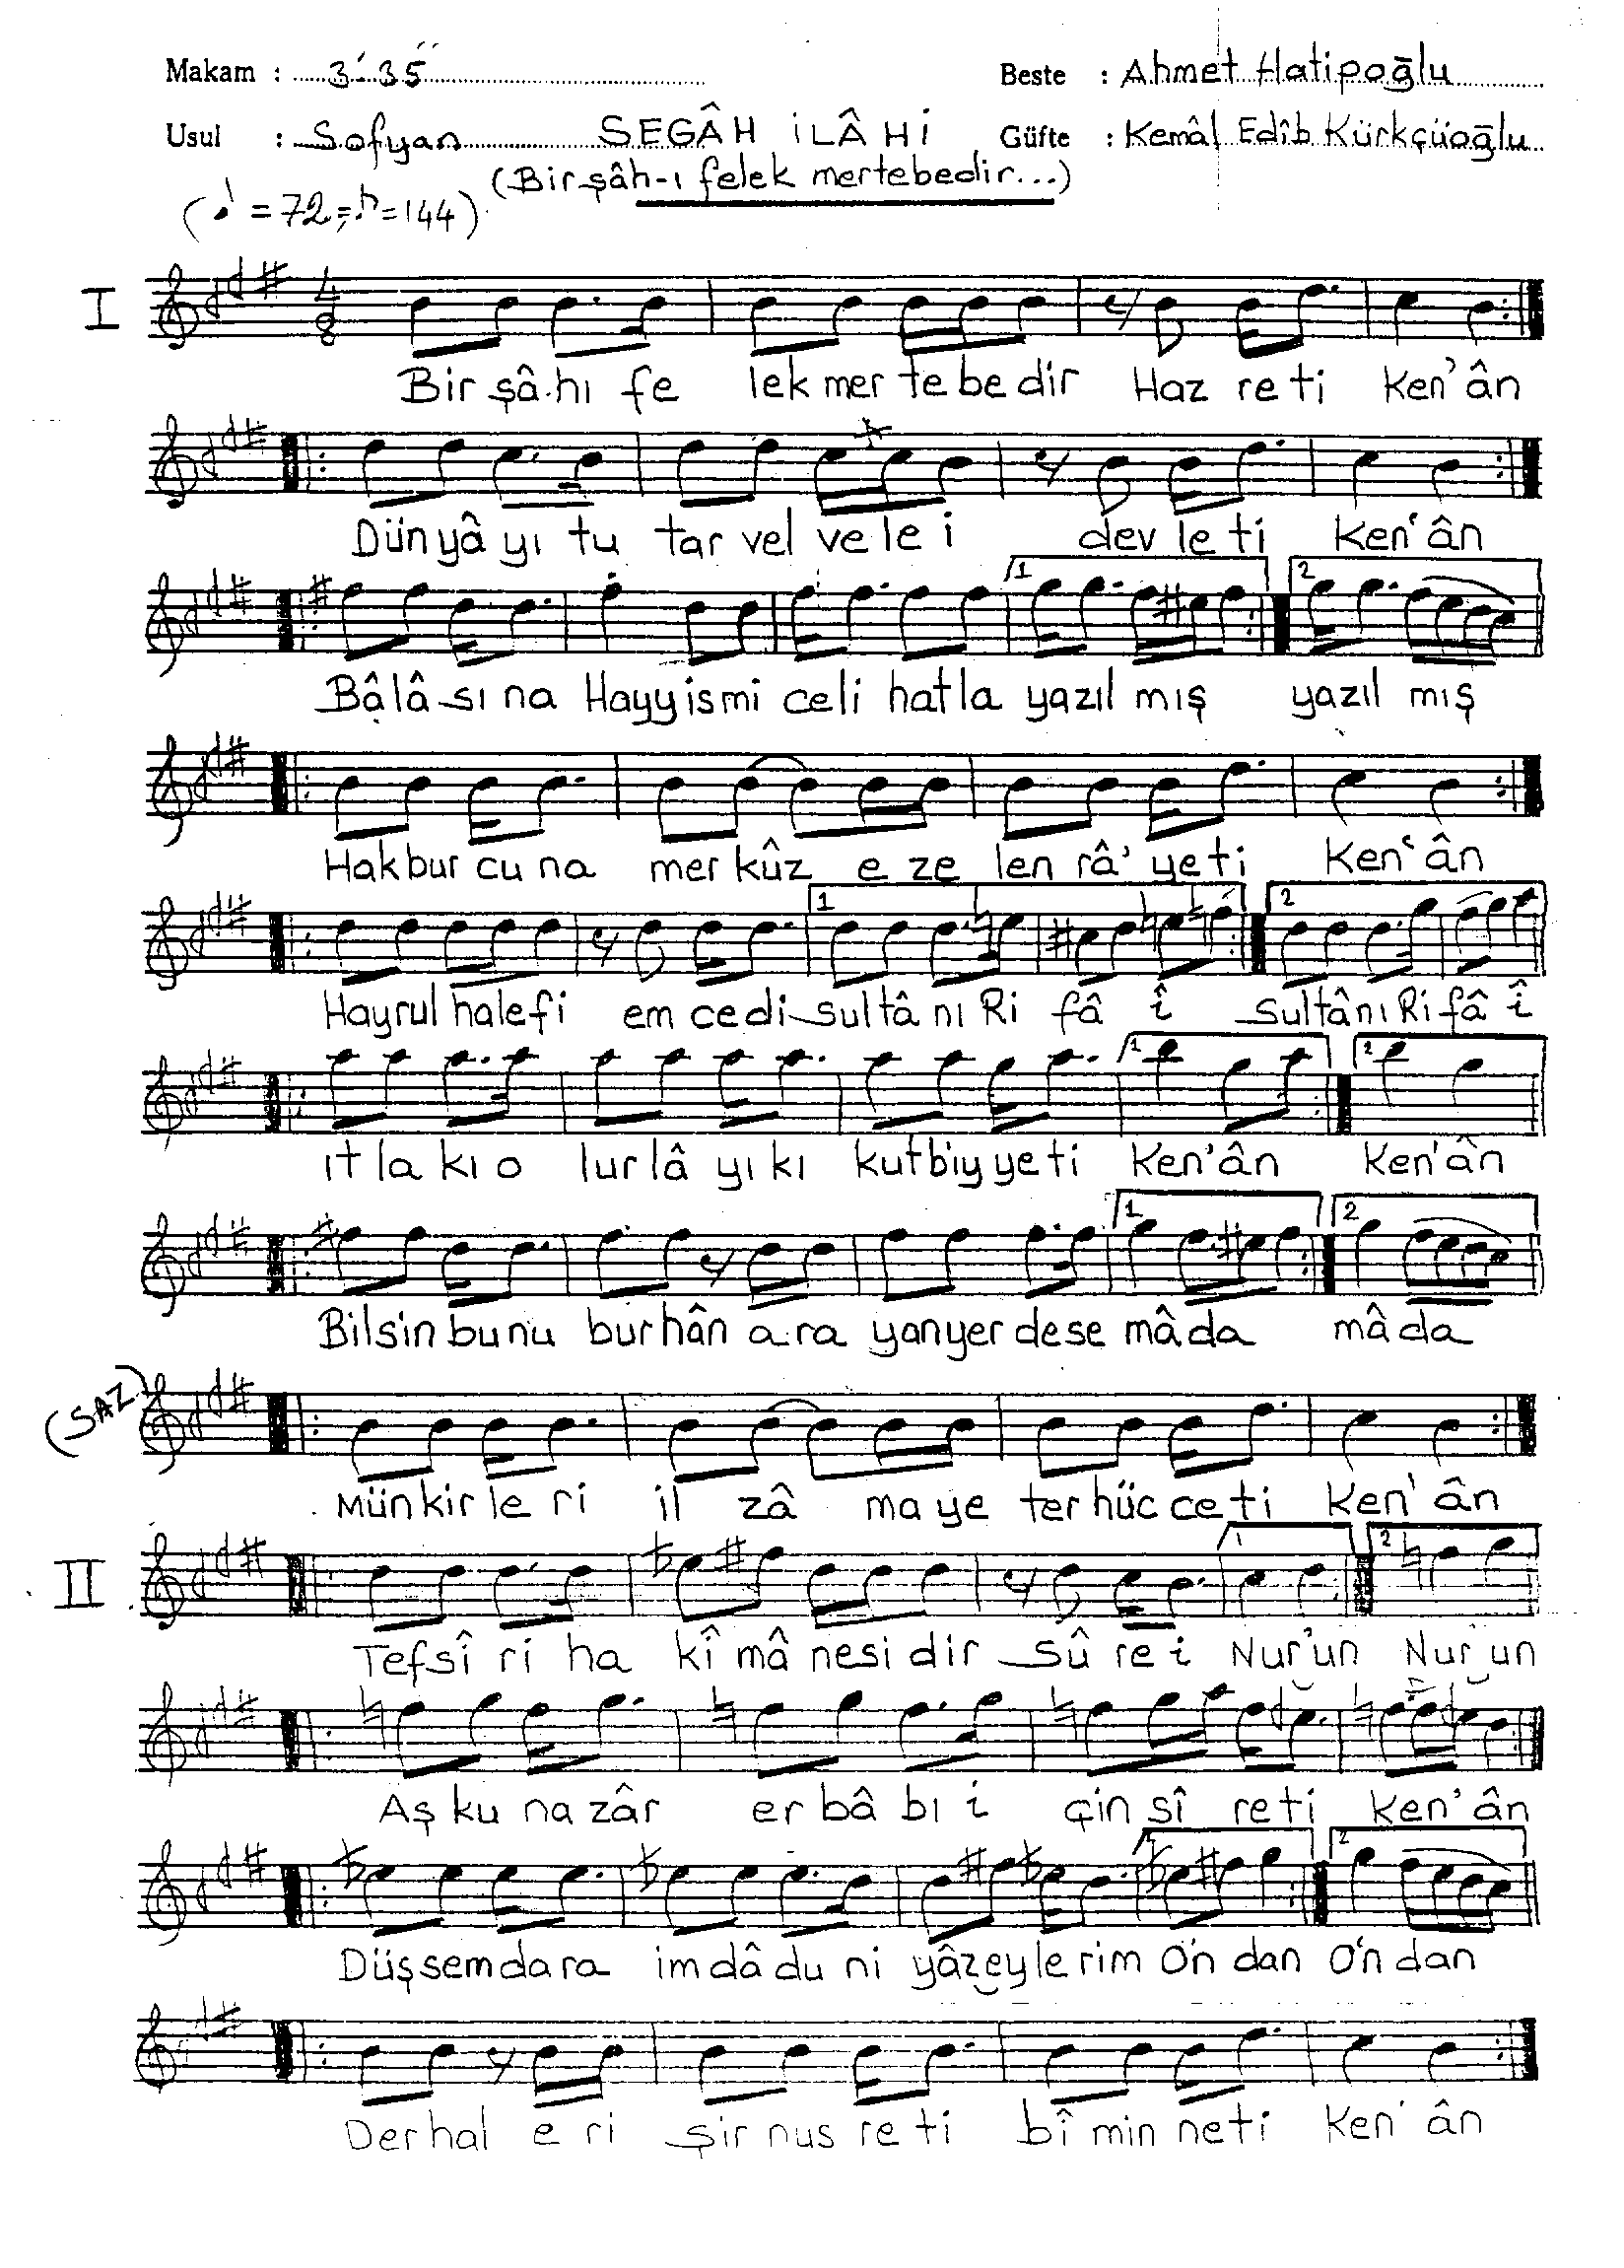 Makam : 3′ 35″ Beste : Ahmet Hatipoğlu
Usul : Sofyan SEGÂH İLÂHİ Güfte : Kemâl Edîb Kürkçüoğlu
(Bir şâh-ı felek mertebedir...)
(♩ = 72 = ♪ = 144)
I
4
8
Bir şâ hı fe lek mer te be dir Haz re ti Ken' ân
Dün yâ yı tu tar vel ve le i dev le ti Ken' ân
1 2
Bâ lâ sı na Hayy is mi ce li hat la yazıl mış yazıl mış
Hak bur cu na mer kûz e ze len râ' ye ti Ken' ân
1 2
Hayrul halefi em ce di sul tâ nı Ri fâ î Sul tâ nı Ri fâ î
1 2
ıt la kı o lur lâ yı kı kut biy ye ti Ken' ân Ken' ân
1 2
Bil sin bu nu bur hân a ra yan yer de se mâ da mâ da
(SAZ)
Mün kir le ri il zâ ma ye ter hüc ce ti Ken' ân
II
1 2
Tef sî ri ha kî mâ nesi dir Sû re i Nur' un Nur' un
Aş ku na zâr er bâ bı i çin sî re ti Ken' ân
1 2
Düş sem da ra im dâ du ni yâz ey le rim O'n dan O'n dan
Der hal e ri şir nus re ti bî min ne ti Ken' ân